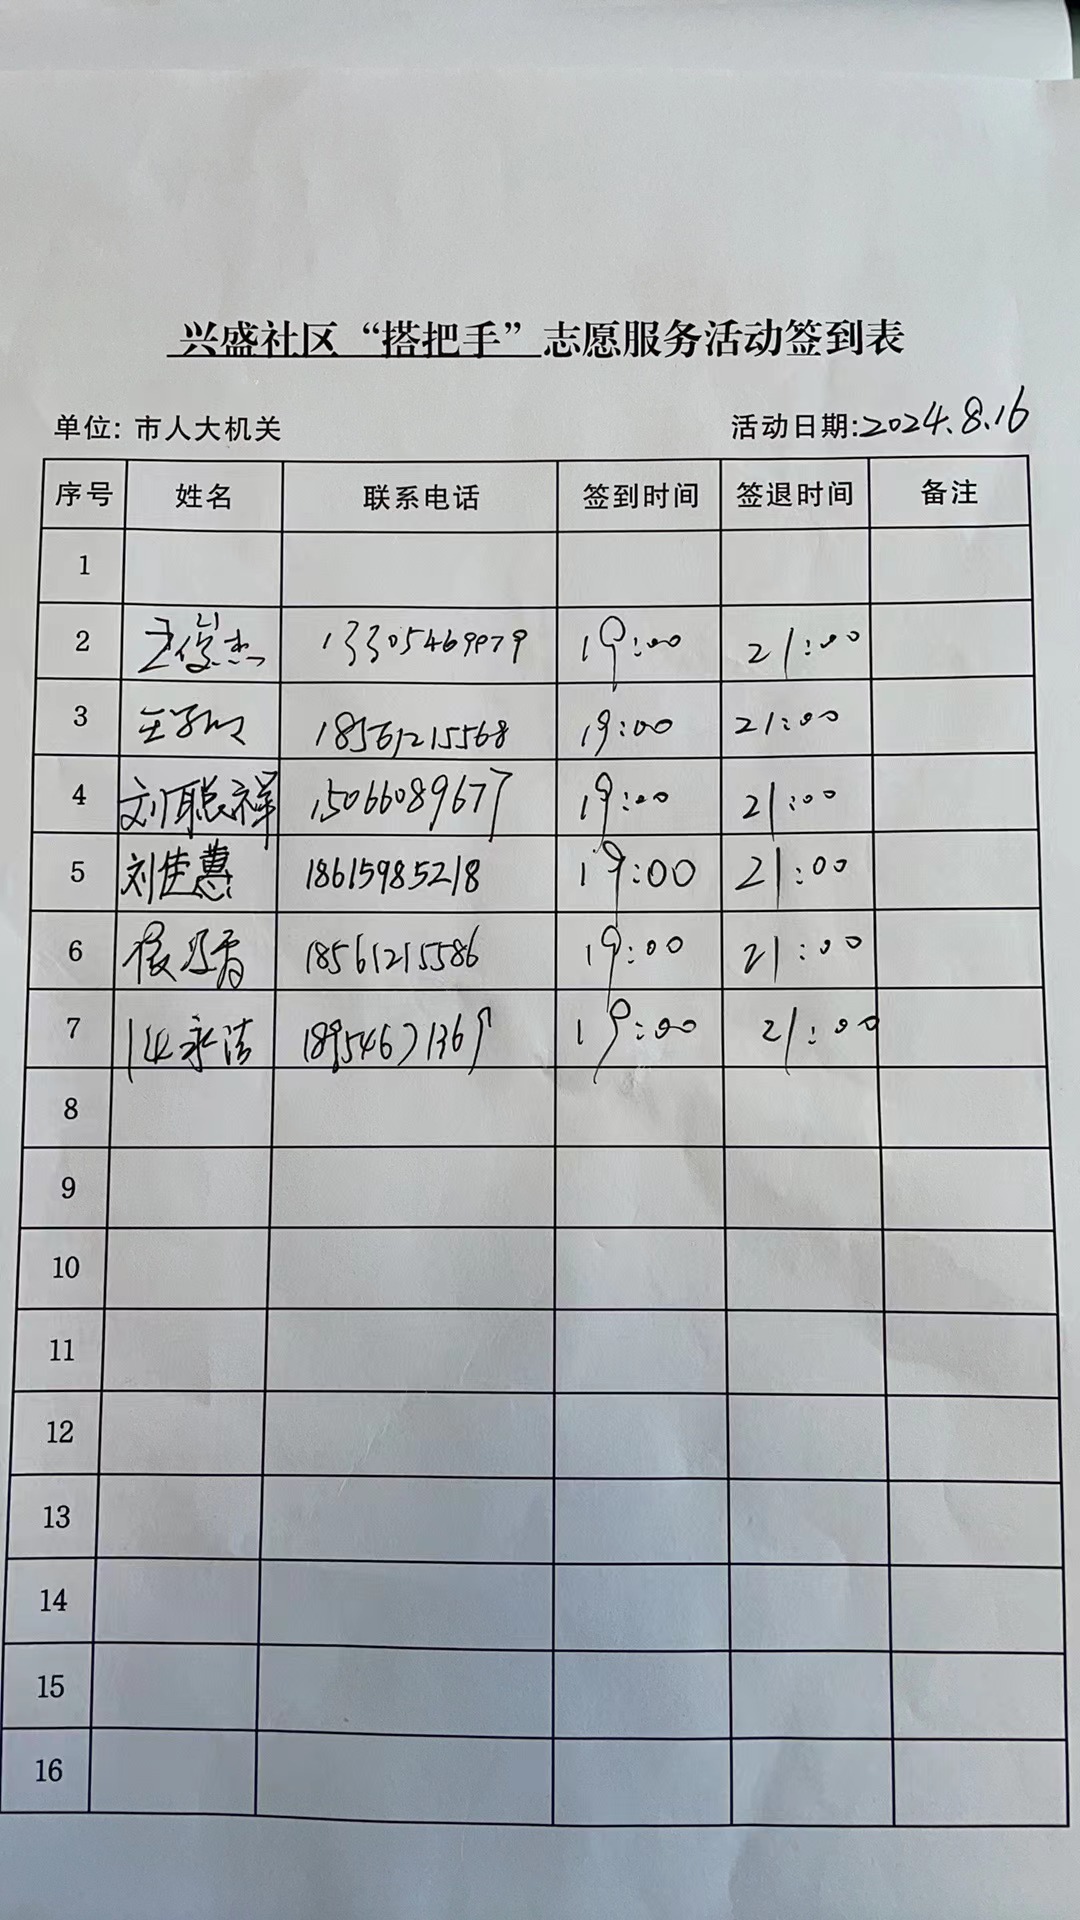 兴盛社区“搭把手”志愿服务活动签到表
单位: 市人大机关 活动日期:2024.8.16
序号 姓名 联系电话 签到时间 签退时间 备注
1
2 王俊杰 13305469979 19:00 21:00
3 18561215568 19:00 21:00
4 刘聪祥 15066089677 19:00 21:00
5 刘佳慧 18615985218 19:00 21:00
6 18561215586 19:00 21:00
7 18954671369 19:00 21:00
8
9
10
11
12
13
14
15
16